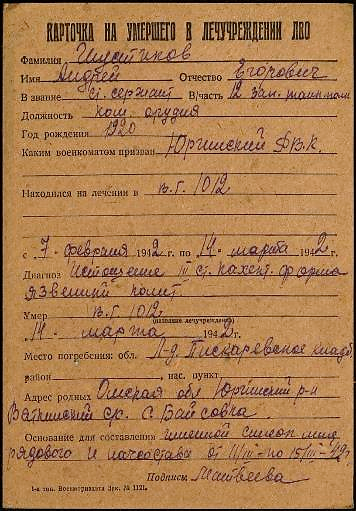 КАРТОЧКА НА УМЕРШЕГО В ЛЕЧУЧРЕЖДЕНИИ ЛВО
Фамилия Шитиков
Имя Андрей Отчество Егорович
В звание ст. сержант В/часть 12 зап.
Должность ком. орудия
Год рождения 1920
Каким военкоматом призван Юргинский РВК.
Находился на лечении в в.г. 1012
с 7 февраля 1942 г. по 14 марта 1942 г.
Диагноз Истощение III ст. кахект. форма
язвенный колит
Умер в.г. 1012
(название лечучреждения)
14 марта 1942 г.
Место погребения: обл. Л-д. Пискаревское кладб.
район нас. пункт
Адрес родных Омская обл Юргинский р-н
с/с. с.
Основание для составления именной список
рядового и начсостава от 1/III по 15/III-42 г.
Подпись Матвеева
1-я тип. Воениздата Зак. № 1121.